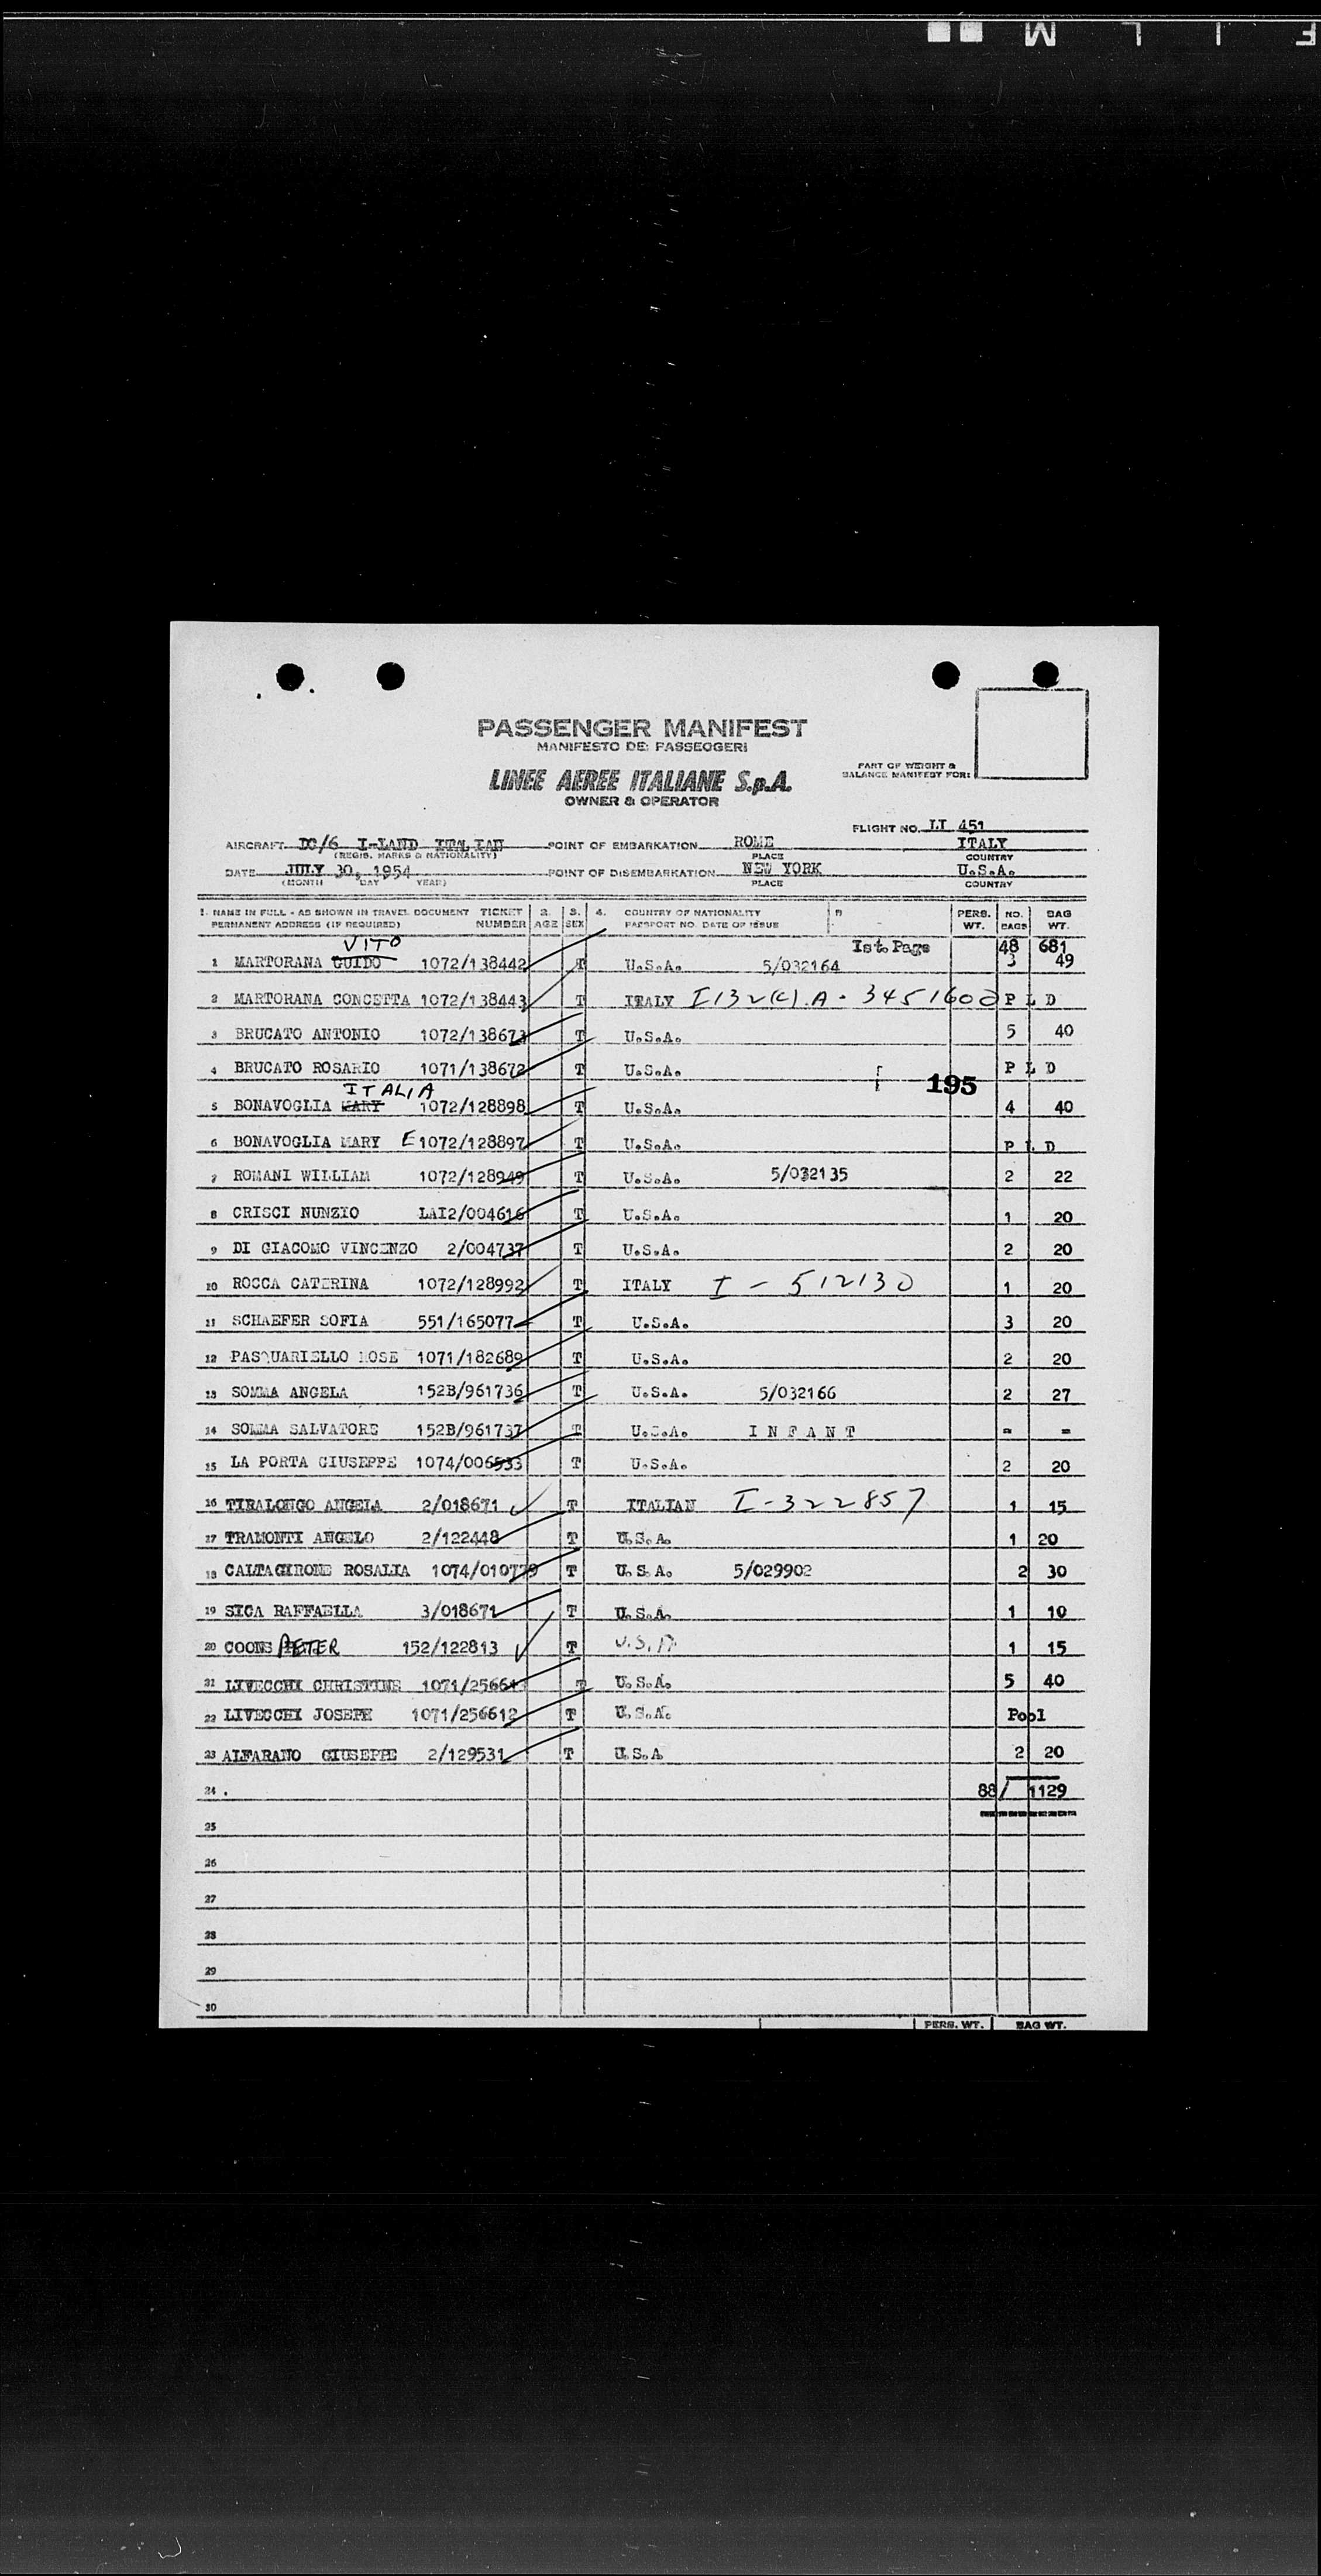 F I L M
PASSENGER MANIFEST
MANIFESTO DEI PASSEGGERI
LINEE AEREE ITALIANE S.p.A.
OWNER & OPERATOR
PART OF WEIGHT &
BALANCE MANIFEST FOR:
FLIGHT NO. LI 451
AIRCRAFT DC/6 I-LAND ITALIAN POINT OF EMBARKATION ROME ITALY
(REGIS. MARKS & NATIONALITY) PLACE COUNTRY
DATE JULY 30, 1954 POINT OF DISEMBARKATION NEW YORK U.S.A.
(MONTH DAY YEAR) PLACE COUNTRY
1. NAME IN FULL - AS SHOWN IN TRAVEL DOCUMENT TICKET 2. 3. 4. COUNTRY OF NATIONALITY PERS. NO. BAG
PERMANENT ADDRESS (IF REQUIRED) NUMBER AGE SEX PASSPORT NO. DATE OF ISSUE WT. BAGS WT.
VITO Ist. Page 48 681
1 MARTORANA GUIDO 1072/138442 T U.S.A. 5/032164 3 49
2 MARTORANA CONCETTA 1072/138443 T ITALY I132(c).A-3451600 P L D
3 BRUCATO ANTONIO 1072/138673 T U.S.A. 5 40
4 BRUCATO ROSARIO 1071/138672 T U.S.A. P L D
ITALIA 195
5 BONAVOGLIA MARY 1072/128898 T U.S.A. 4 40
6 BONAVOGLIA MARY E 1072/128897 T U.S.A. P L D
7 ROMANI WILLIAM 1072/128949 T U.S.A. 5/032135 2 22
8 CRISCI NUNZIO LAI2/004616 T U.S.A. 1 20
9 DI GIACOMO VINCENZO 2/004737 T U.S.A. 2 20
10 ROCCA CATERINA 1072/128992 T ITALY I - 512130 1 20
11 SCHAEFER SOFIA 551/165077 T U.S.A. 3 20
12 PASQUARIELLO ROSE 1071/182689 T U.S.A. 2 20
13 SOMMA ANGELA 152B/961736 T U.S.A. 5/032166 2 27
14 SOMMA SALVATORE 152B/961737 T U.S.A. I N F A N T - -
15 LA PORTA GIUSEPPE 1074/006533 T U.S.A. 2 20
16 TIRALONGO ANGELA 2/018671 T ITALIAN I-322857 1 15
17 TRAMONTI ANGELO 2/122448 T U.S.A. 1 20
18 CALTAGIRONE ROSALIA 1074/010779 T U.S.A. 5/029902 2 30
19 SICA RAFFAELLA 3/018671 T U.S.A. 1 10
20 COONS PETER 152/122813 T U.S.A. 1 15
21 LIVECCHI CHRISTINE 1071/25661 T U.S.A. 5 40
22 LIVECCHI JOSEPH 1071/256612 T U.S.A. Pool
23 ALFARANO GIUSEPPE 2/129531 T U.S.A 2 20
24 . 88/ 1129
25
26
27
28
29
30
PERS. WT. BAG WT.